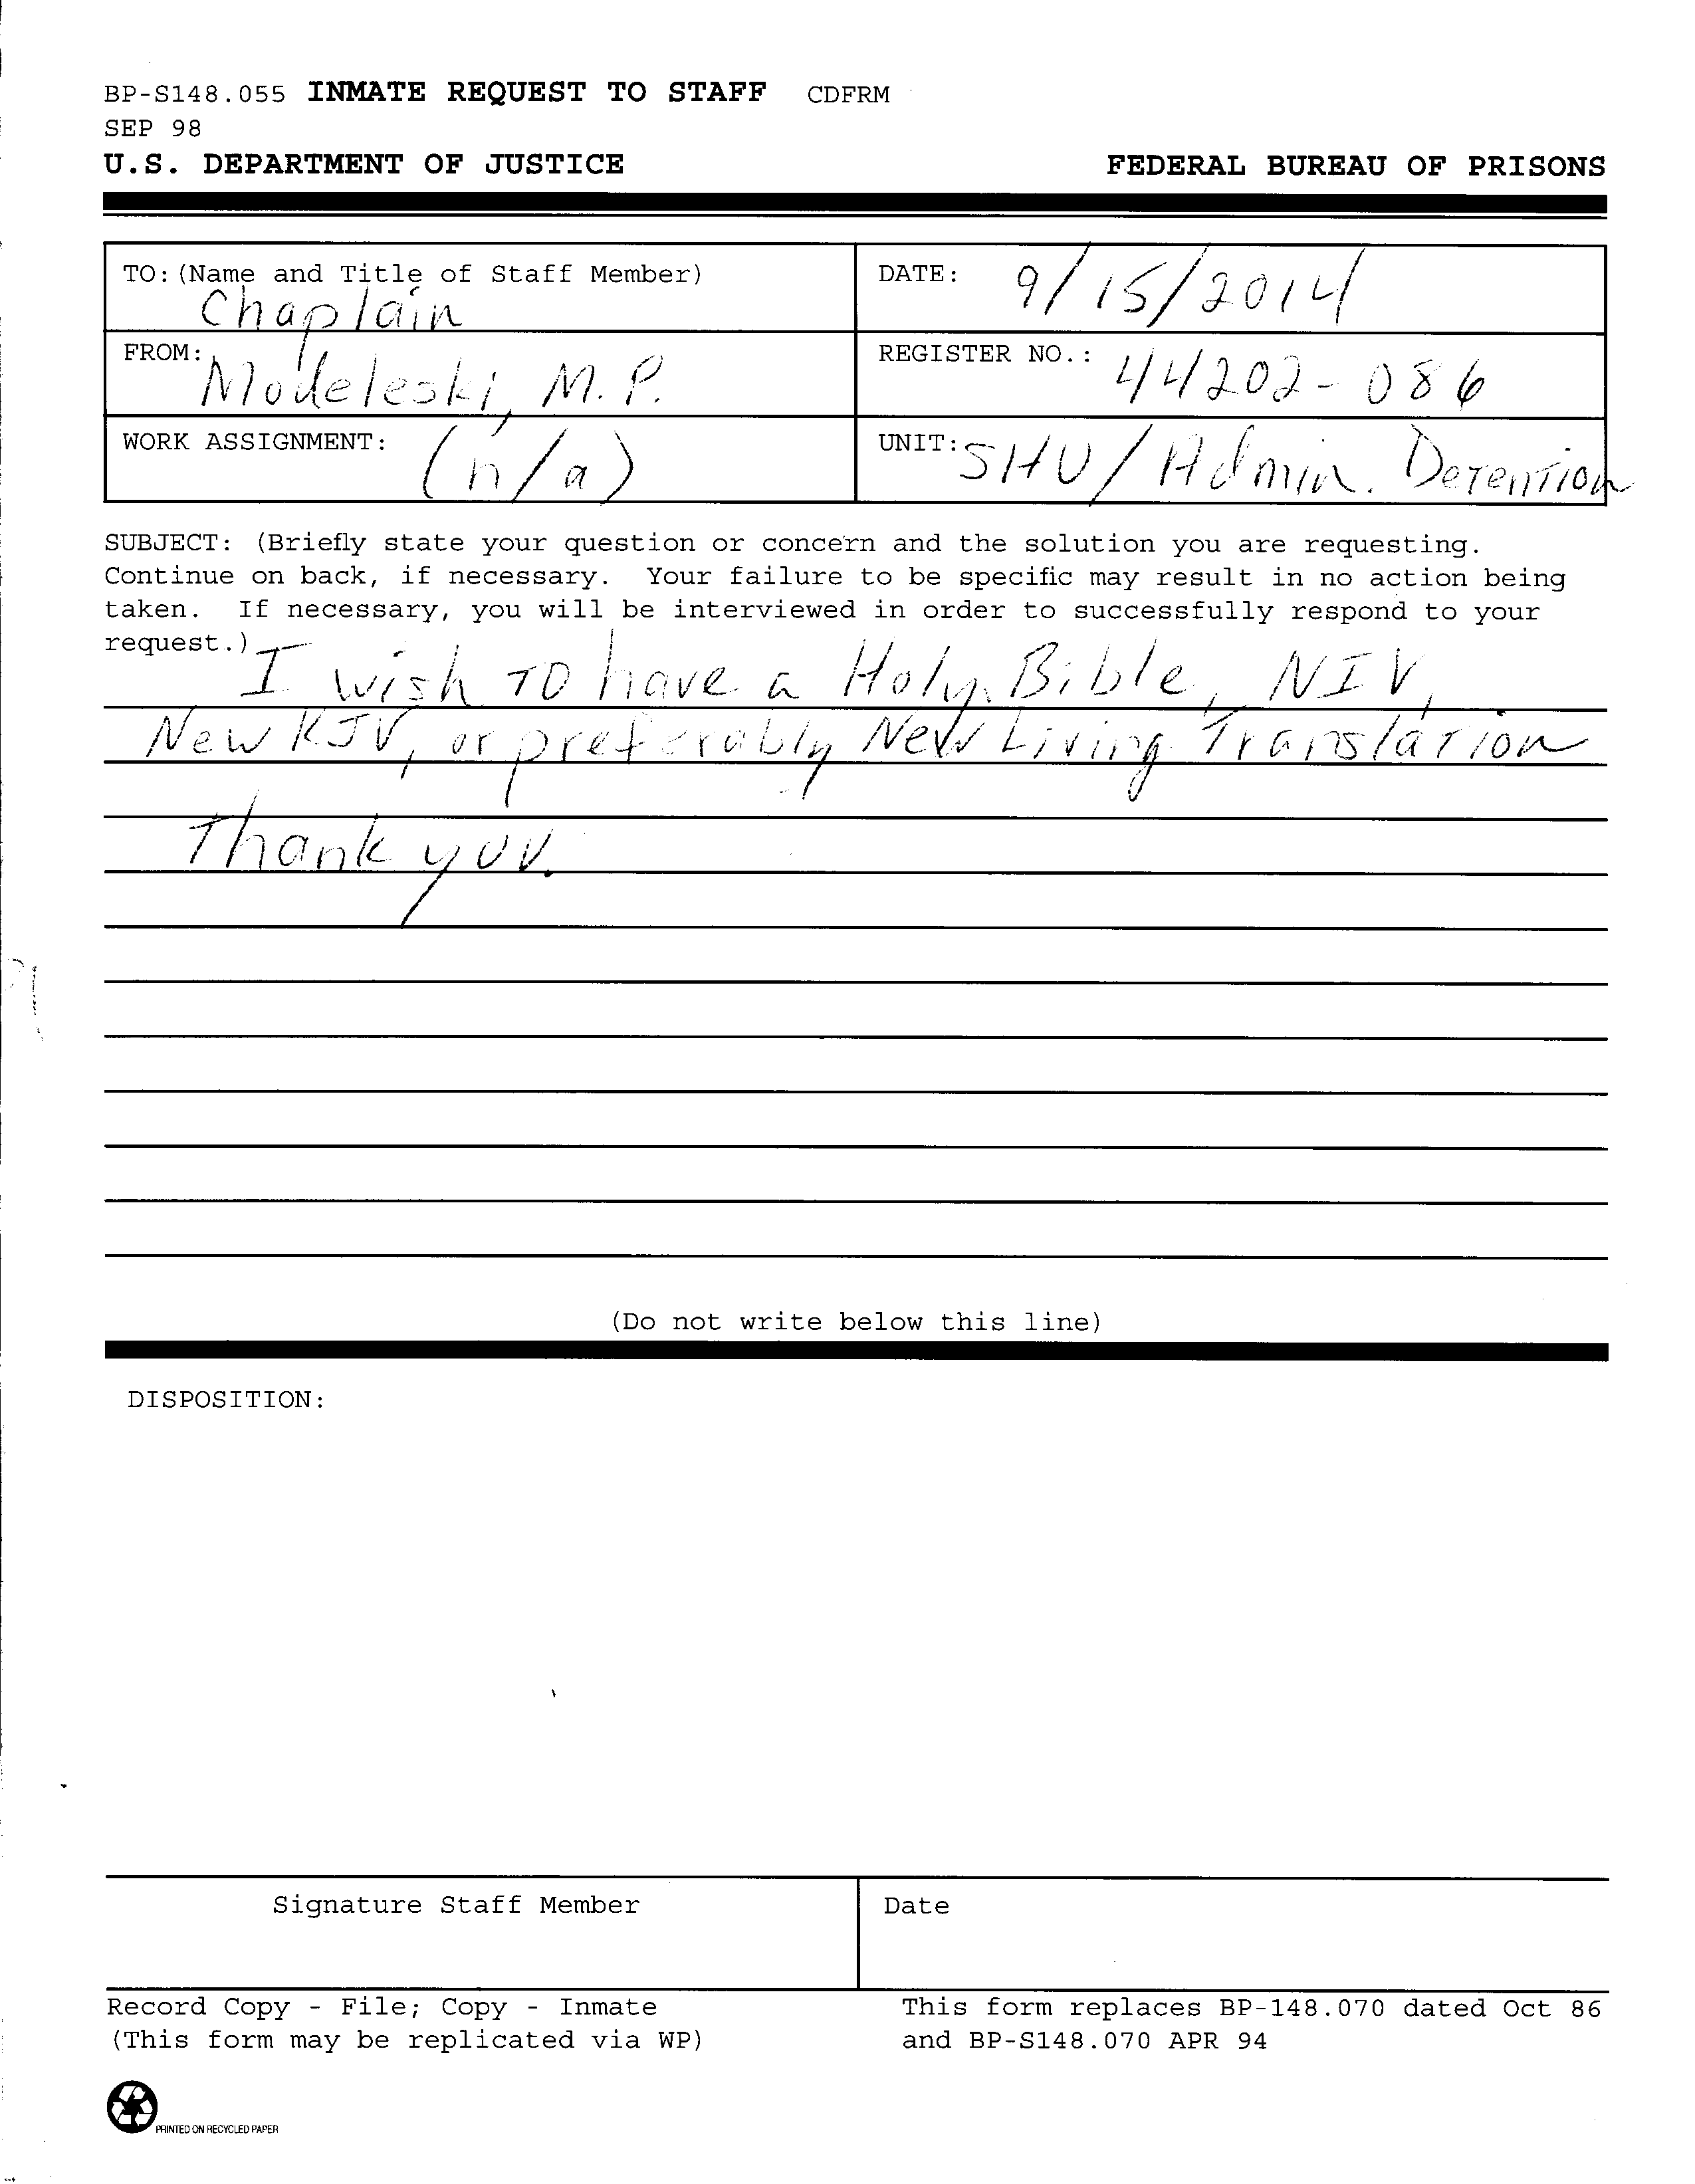 BP-S148.055 INMATE REQUEST TO STAFF CDFRM
SEP 98
U.S. DEPARTMENT OF JUSTICE FEDERAL BUREAU OF PRISONS
TO: (Name and Title of Staff Member) DATE: 9/15/2014
Chaplain
FROM: Modeleski, M.P. REGISTER NO.: 44202-086
WORK ASSIGNMENT: (n/a) UNIT: SHU/Admin. Detention
SUBJECT: (Briefly state your question or concern and the solution you are requesting.
Continue on back, if necessary. Your failure to be specific may result in no action being
taken. If necessary, you will be interviewed in order to successfully respond to your
request.)
I wish to have a Holy Bible, NIV,
New KJV, or preferably New Living Translation
Thank you.
(Do not write below this line)
DISPOSITION:
Signature Staff Member Date
Record Copy - File; Copy - Inmate This form replaces BP-148.070 dated Oct 86
(This form may be replicated via WP) and BP-S148.070 APR 94
PRINTED ON RECYCLED PAPER